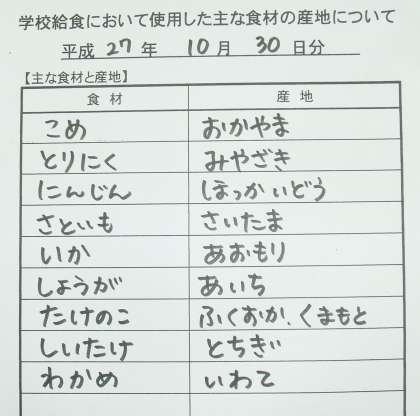 学校給食において使用した主な食材の産地について
平成 27 年 10 月 30 日分
【主な食材と産地】
食材 産地
こめ おかやま
とりにく みやざき
にんじん ほっかいどう
さといも さいたま
いか あおもり
しょうが あいち
たけのこ ふくおか、くまもと
しいたけ とちぎ
わかめ いわて